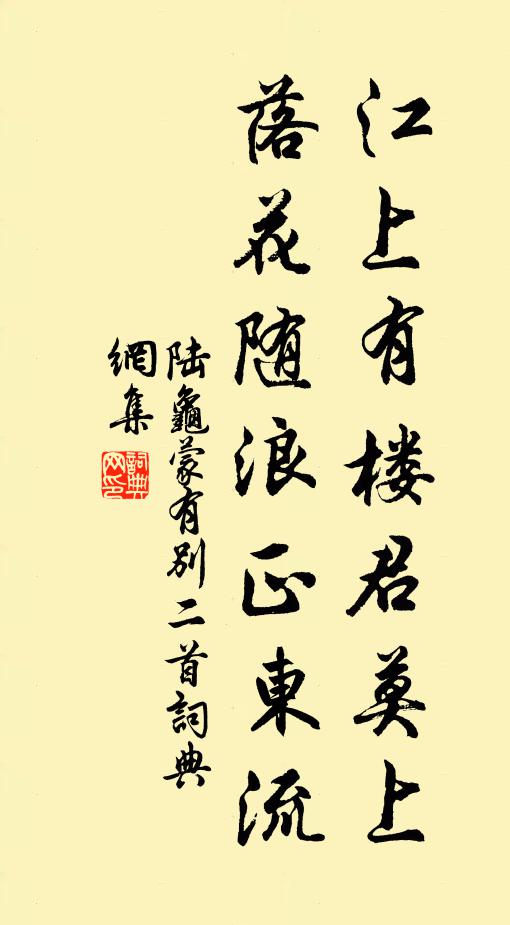 江上有楼君莫上
落花随浪正東流
陆龜蒙有別二首詞典
網集
詞典网印